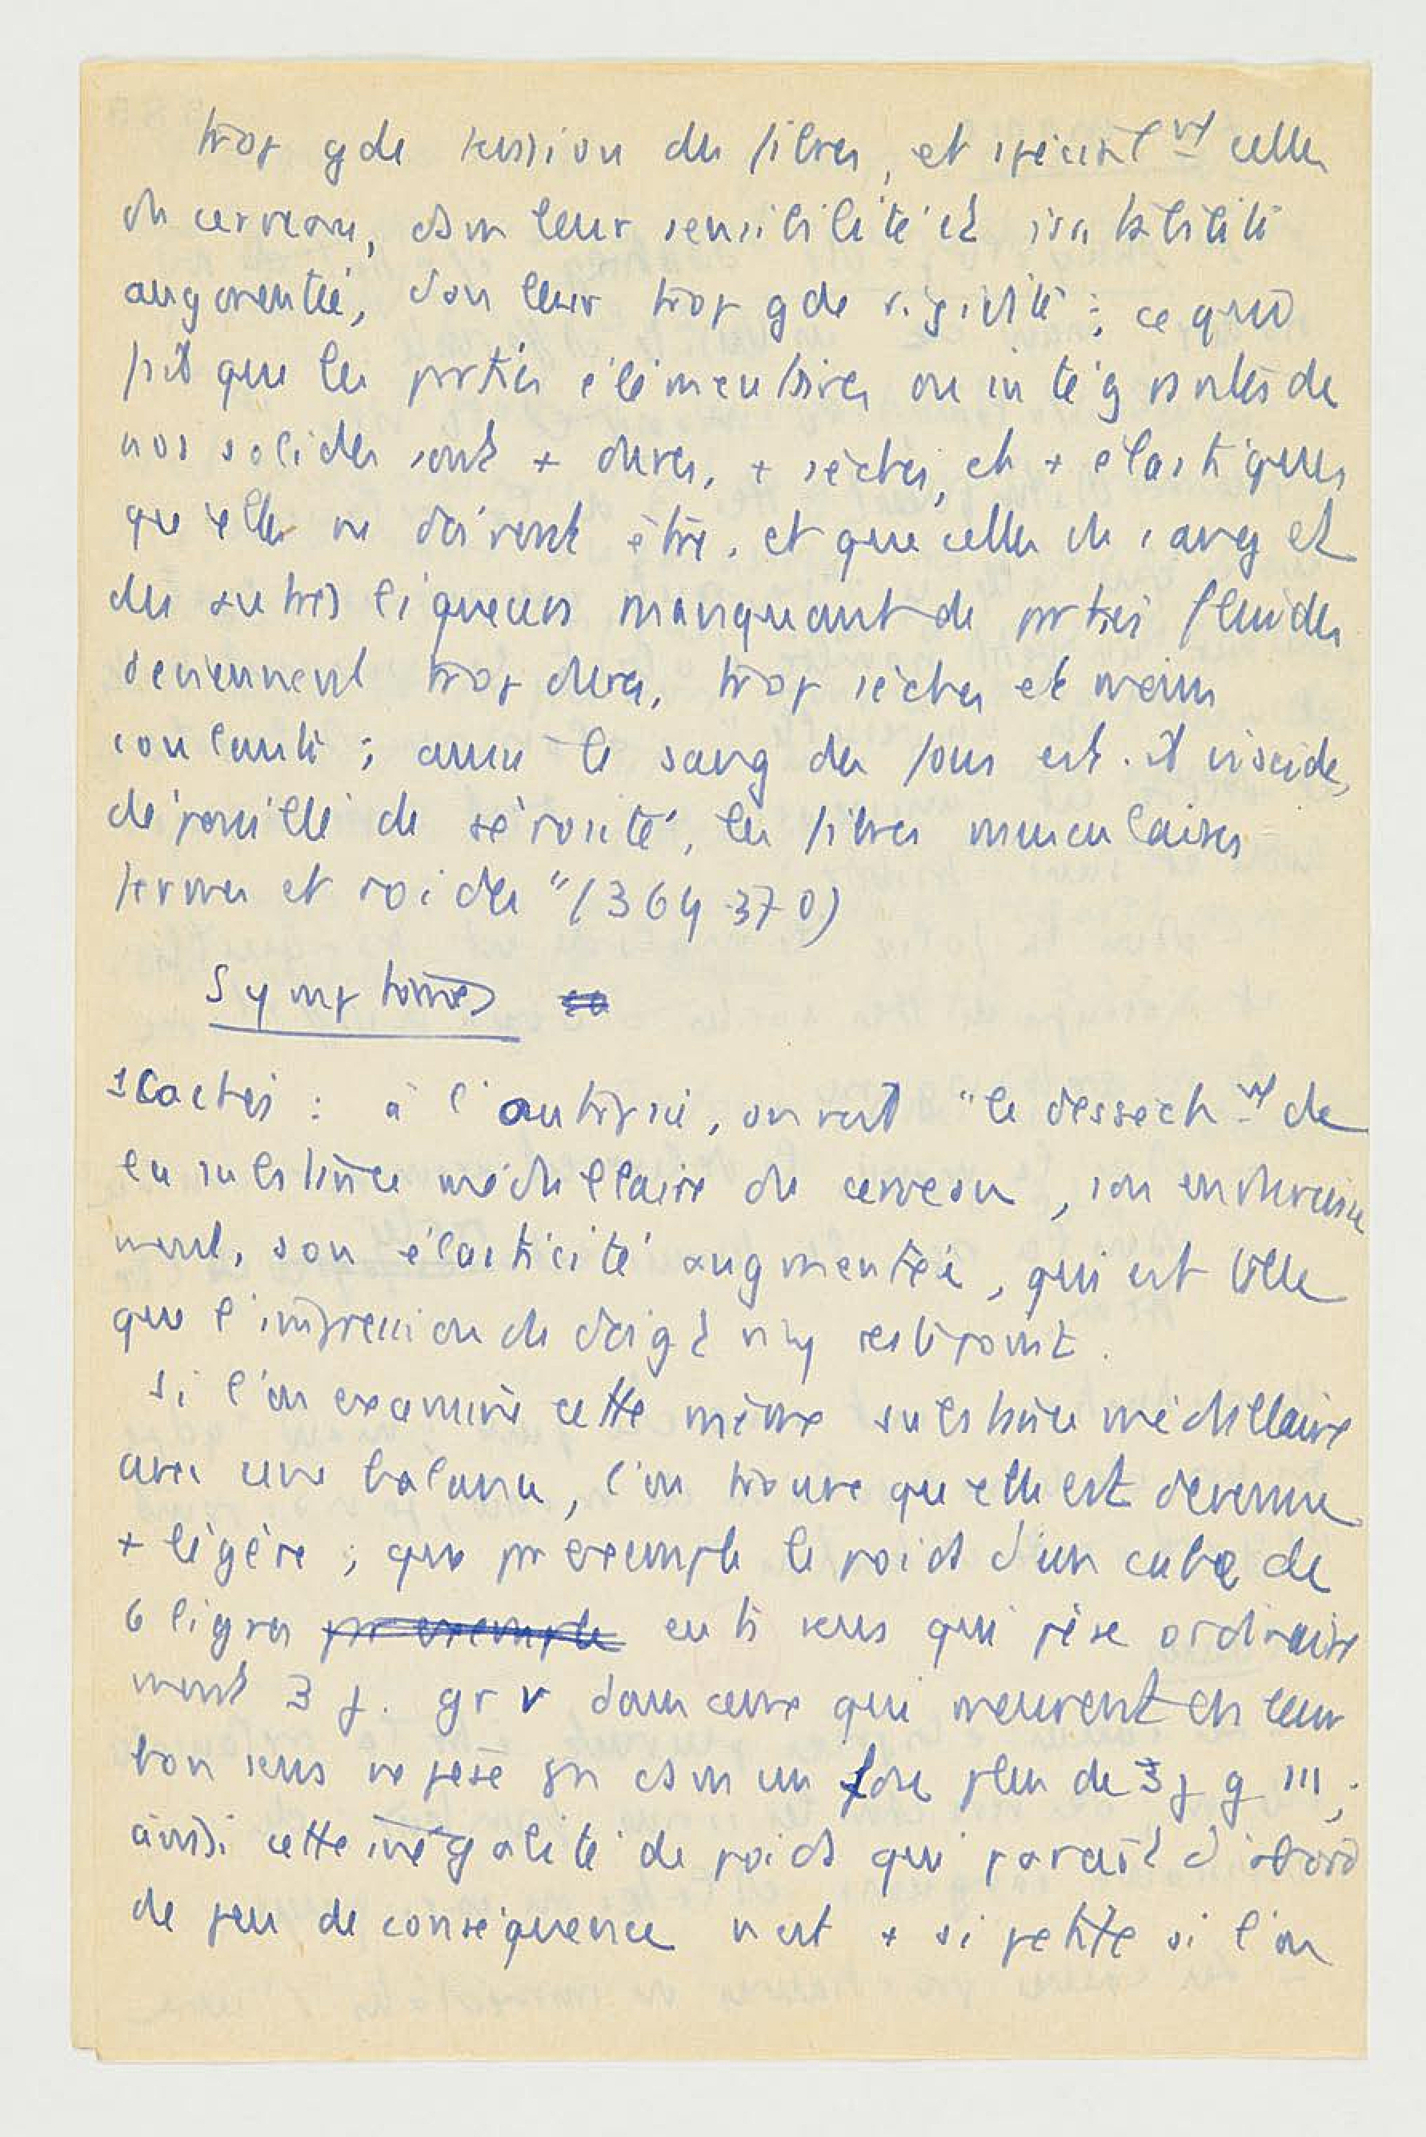 trop gde tension des fibres, et spécialmt celles
du cerveau, dans leur sensibilité et irritabilité
augmentée, dans leur trop gde rigidité ; ce qui
fait que les parties élémentaires ou intégrantes de
nos solides sont + dures, + sèches, et + élastiques
qu'elles ne doivent être, et que celles du sang et
des autres liqueurs manquant de parties fluides
deviennent trop dures, trop sèches et moins
coulantes ; aussi le sang des fous est-il viscide,
dépouillé de sérosité, les fibres musculaires
fermes et roides" (364-370)
Symptômes
Cachés : à l'autopsie, on voit "le dessèchmt de
la substance médullaire du cerveau, son endurcisse
ment, son élasticité augmentée, qui est telle
que l'impression du doigt n'y reste point.
Si l'on examine cette même substance médullaire
avec une balance, l'on trouve qu'elle est devenue
+ légère ; que pr exemple le poids d'un cube de
6 lignes pr exemple en ts sens qui pèse ordinaire
ment 3 j. gr v dans ceux qui meurent en leur
bon sens ne pèse gn dans un fou plus de 3 j g III ;
ainsi cette inégalité de poids qui paraît d'abord
de peu de conséquence n'est + si petite si l'on